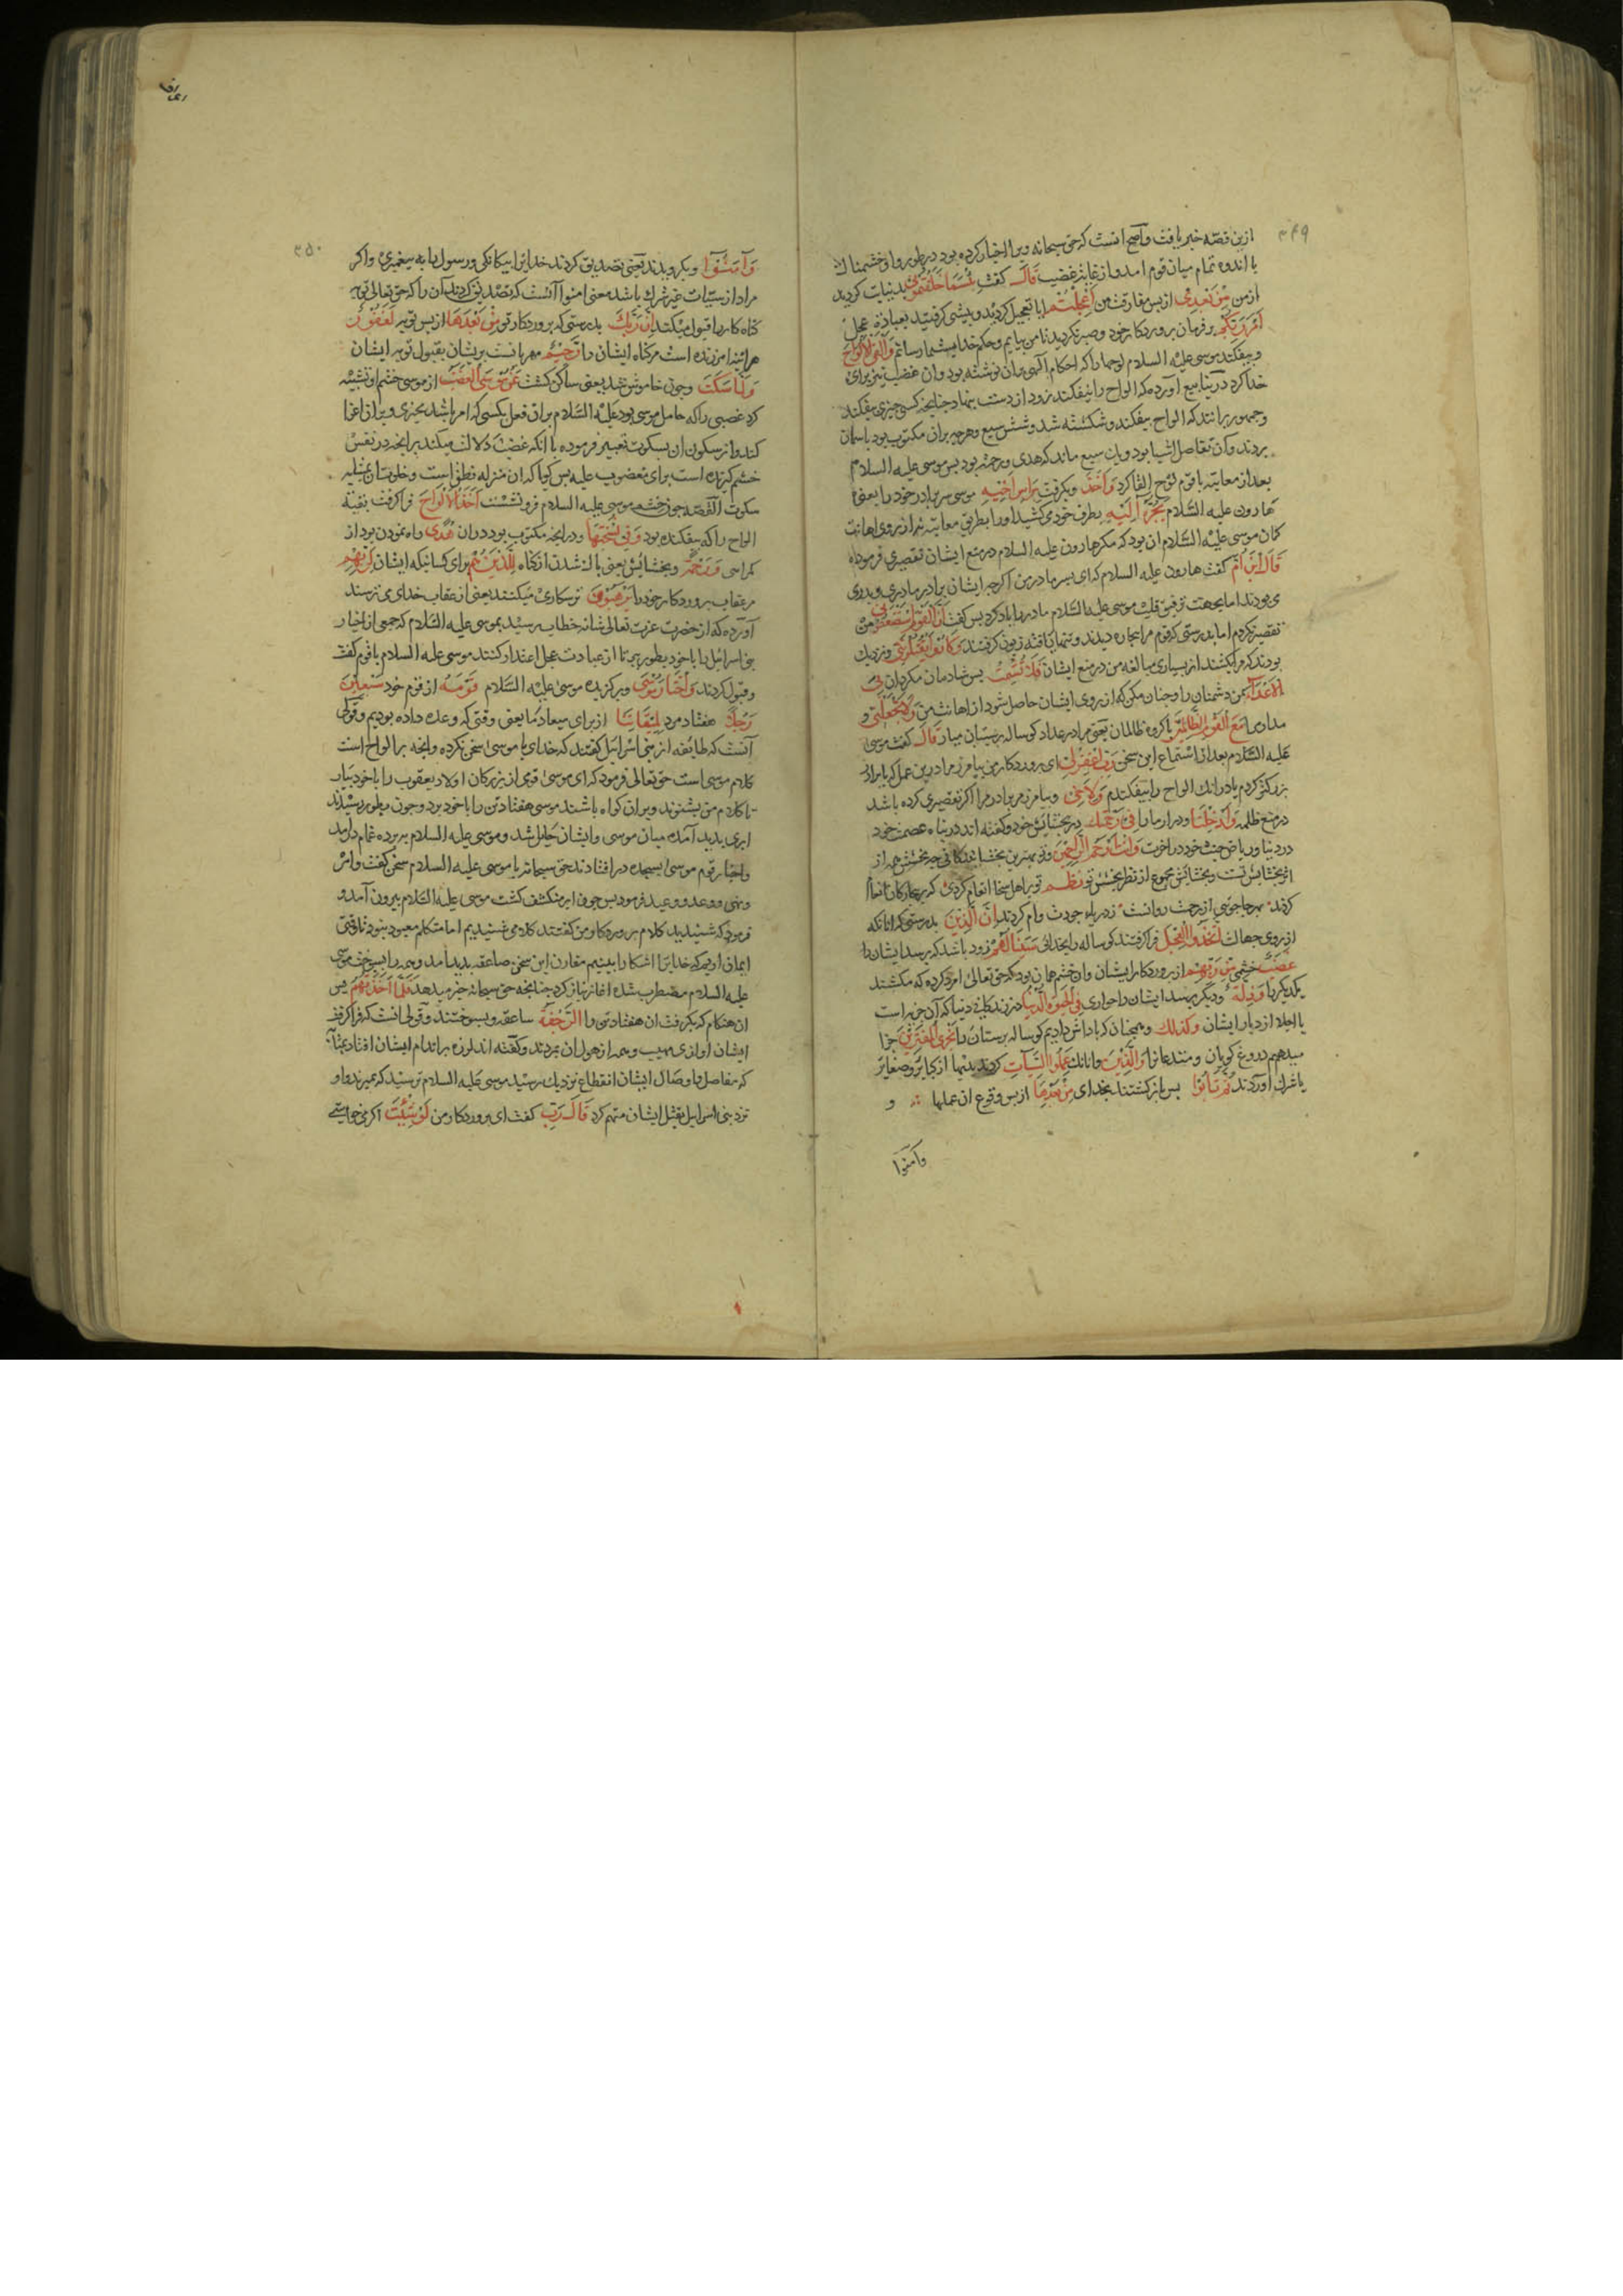 ۳۴۹
ازین قصه خبر یافت واصح انست که حق سبحانه ویرا اخبار کرده بود در طور واو خشمناک
با اندوه تمام میان قوم امد واز غایت غضب قَالَ کفت بِئْسَمَا خَلَفْتُمُونِی بد نیابت کردید
ازمن مِنْ بَعْدِی از پس مفارقت من اَعَجِلْتُمْ ایا تعجیل کردید و پیشی کرفتید بعبادة عجل
اَمْرَ رَبِّکُمْ بر فرمان پروردکار خود و صبر نکردید تا من بیایم وحکم خدای بشما رسانم وَاَلْقَی الْاَلْوَاحَ
وبیفکند موسی علیه السلام لوحها را که احکام الهی بران نوشته بود وان غضب نیز برای
خدا کرد در ینابیع اورده که الواح را بیفکند زود از دست بنهاد چنانچه کسی چیزی بیفکند
وجمهور برانند که الواح بیفکند و شکسته شد و شش سبع وهرچه بران مکتوب بود باسمان
بردند وآن تفاصیل اشیا بود ویک سبع ماند که هدی ورحمة بود پس موسی علیه السلام
بعد از معاتبه با قوم لوح القا کرد وَاَخَذَ وبکرفت بِرَاْسِ اَخِیهِ موسی سر برادر خود را یعنی
هارون علیه السلام یَجُرُّهُ اِلَیْهِ بطرف خود می کشید اورا بطریق معاتبه نه از روی اهانت
کمان موسی علیه السلام ان بود که مکر هارون علیه السلام در منع ایشان تقصیری فرموده
قَالَ ابْنَ اُمَّ کفت هارون علیه السلام که ای پسر مادر من اکرچه ایشان برادر مادری وپدری
می بودند اما بجهت ترقیق قلب موسی علیه السلام مادر را یاد کرد پس کفت اِنَّ الْقَوْمَ اسْتَضْعَفُونِی من
تقصیر نکردم اما بدرستی که قوم مرا بیچاره دیدند وتنها یافته زبون کرفتند وَکَادُوا یَقْتُلُونَنِی ونزدیک
بودند که مرا بکشند از بسیاری مبالغه من در منع ایشان فَلَا تُشْمِتْ پس شادمان مکردان بِیَ
الْاَعْدَاءَ بمن دشمنان را وچنان مکن که از روی ایشان حاصل شود از اهانت من وَلَا تَجْعَلْنِی و
مدار مرا مَعَ الْقَوْمِ الظَّالِمِینَ با کروه ظالمان یعنی مرا در عداد کوساله پرستان میار قَالَ کفت موسی
علیه السلام بعد از استماع این سخن رَبِّ اغْفِرْ لِی ای پروردکار من بیامرز مرا درین عمل که با برادر
بزرکتر کردم یا درانک الواح را بیفکندم وَلِاَخِی وبیامرز مر برادر مرا اکر تقصیری کرده باشد
در منع ظلمه وَاَدْخِلْنَا ودرار مارا فِی رَحْمَتِکَ در بخشایش خود وکفته اند در پناه عصمت خود
در دنیا وریاض جنت خود در اخرت وَاَنْتَ اَرْحَمُ الرَّاحِمِینَ وتو بهترین بخشایندکانی چه بخشش همه از
اثر بخشایش تست وبخشایش مجموع از نظر بخشش تو نظـم تو براهل سخا انعام کردی که برجمله کان انعام
کردند ٠ بهرجا جویی از رحمت روانست ٠ ز دریای جودت وام کردند اِنَّ الَّذِینَ بدرستی که انانکه
از روی جهالت اتَّخَذُوا الْعِجْلَ فرا کرفتند کوساله را بخدائی سَیَنَالُهُمْ زود باشد که برسد ایشان را
غَضَبٌ خشمی مِنْ رَبِّهِمْ از پروردکار ایشان وان خشم همان بود که حق تعالی امر کرده که مکشتند
یکدیکر را وَذِلَّةٌ ودیکر برسد ایشان را خواری فِی الْحَیٰوةِ الدُّنْیَا در زندکانی دنیا که آن جزیه است
یا اجلا از دیار ایشان وَکَذٰلِکَ وهمچنان که پاداش دادیم کوساله پرستان را نَجْزِی الْمُفْتَرِینَ جزا
میدهیم دروغ کویان ومبتدعانرا وَالَّذِینَ وانانک عَمِلُوا السَّیِّاٰتِ کردند بدیها از کبایر وصغایر
یا شرک اوردند ثُمَّ تَابُوا پس باز کشتند بخدای مِنْ بَعْدِهَا از پس وقوع ان عملها و
وآمنوا
۳۵۰
وَآمَنُوْآ وبکرویدند یعنی تصدیق کردند خدایرا بیکانکی ورسول را به پیغمبری واکر
مراد از سیئات غیر شرک باشد معنی امنوا آنست که تصدیق کردند آن را که حق تعالی توبه
کناه کاران قبول میکند اِنَّ رَبَّکَ بدرستی که پروردکار تو مِنْ بَعْدِهَا از پس توبه لَغَفُوْرٌ
هراینه امرزنده است مر کناه ایشان را رَحِیْمٌ مهربانست بر یشان بقبول توبه ایشان
وَلَمَّا سَکَتَ وچون خاموش شد یعنی ساکن کشت عَنْ مُوْسَی الْغَضَبُ از موسی خشم او تشبیه
کرد غضبی را که حامل موسی بود علیه السلام بران فعل بکسی که امر باشد بچیزی وبران اغرا
کند واز سکون ان بسکوت تعبیر فرموده با انکه غضب دلالت میکند برانچه در نفس
خشم کیرنده است برای مغضوب علیه پس کویا که ان منزله نطق است وخلوت ان بمثابه
سکوت القصه چون خشم موسی علیه السلام فرو نشست اَخَذَ الْاَلْوَاحَ فرا کرفت بقیه
الواح را که بیفکنده بود وَفِیْ نُسْخَتِهَا ودرانچه مکتوب بود دران هُدًی راه نمودن بود از
کمراهی وَرَحْمَةٌ وبخشایش یعنی پاک شدن از کناه لِلَّذِیْنَ هُمْ برای کسانیکه ایشان لِرَبِّهِمْ
مر عقاب پروردکار خود را یَرْهَبُوْنَ ترسکاری میکنند یعنی از عقاب خدای می ترسند
آورده که از حضرت عزت تعالی شانه خطاب رسید بموسی علیه السلام که جمعی از اخیار
بنی اسرائیل را با خود بطور بر تا از عبادت عجل اعتذار کنند موسی علیه السلام با قوم کفت
وقبول کردند وَاخْتَارَ مُوْسٰی وبرکزیده موسی علیه السلام قَوْمَهُ از قوم خود سَبْعِیْنَ
رَجُلًا هفتاد مرد لِمِیْقَاتِنَا از برای میعاد ما یعنی وقتی که وعده داده بودیم وقولی
آنست که طایفه از بنی اسرائیل کفتند که خدای با موسی سخن نکرده وانچه بر الواح است
کلام موسی است حق تعالی فرمود که ای موسی قومی از بزرکان اولاد یعقوب را با خود بیار
تا کلام من بشنوند وبران کواه باشند موسی هفتاد تن را با خود برد وچون بطور رسیدند
ابری پدید آمده میان موسی وایشان حایل شد وموسی علیه السلام بپرده غمام درامد
واخیار قوم موسی بسجده در افتادند حق سبحانه با موسی علیه السلام سخن کفت وامر
ونهی ووعد ووعید فرمود پس چون ابر منکشف کشت موسی علیه السلام بیرون آمد و
فرمود که شنیدید کلام پروردکار من کفتند کلامی شنیدیم اما متکلم معبود نبود تا وقتی
ایمان اوریم که خدایرا اشکارا ببینیم مقارن این سخن صاعقه پدید امد وهمه را بسوخت موسی
علیه السلام مضطرب شده اغاز نیاز کرد چنانچه حق سبحانه خبر میدهد فَلَمَّا اَخَذَتْهُمُ پس
ان هنکام که بکرفت ان هفتاد تن را الرَّجْفَةُ صاعقه وبسوختند وقولی انست که فرا کرفت
ایشان اوازی مهیب وهمه از هول ان بمردند وکفته اند لرزه بر اندام ایشان افتاد بمثابه
که مفاصل واوصال ایشان انقطاع نزدیک رسید موسی علیه السلام ترسید که بمیرند واو
نزد بنی اسرایل بقتل ایشان متهم کردد قَالَ رَبِّ کفت ای پروردکار من لَوْ شِئْتَ اکر می خواستی